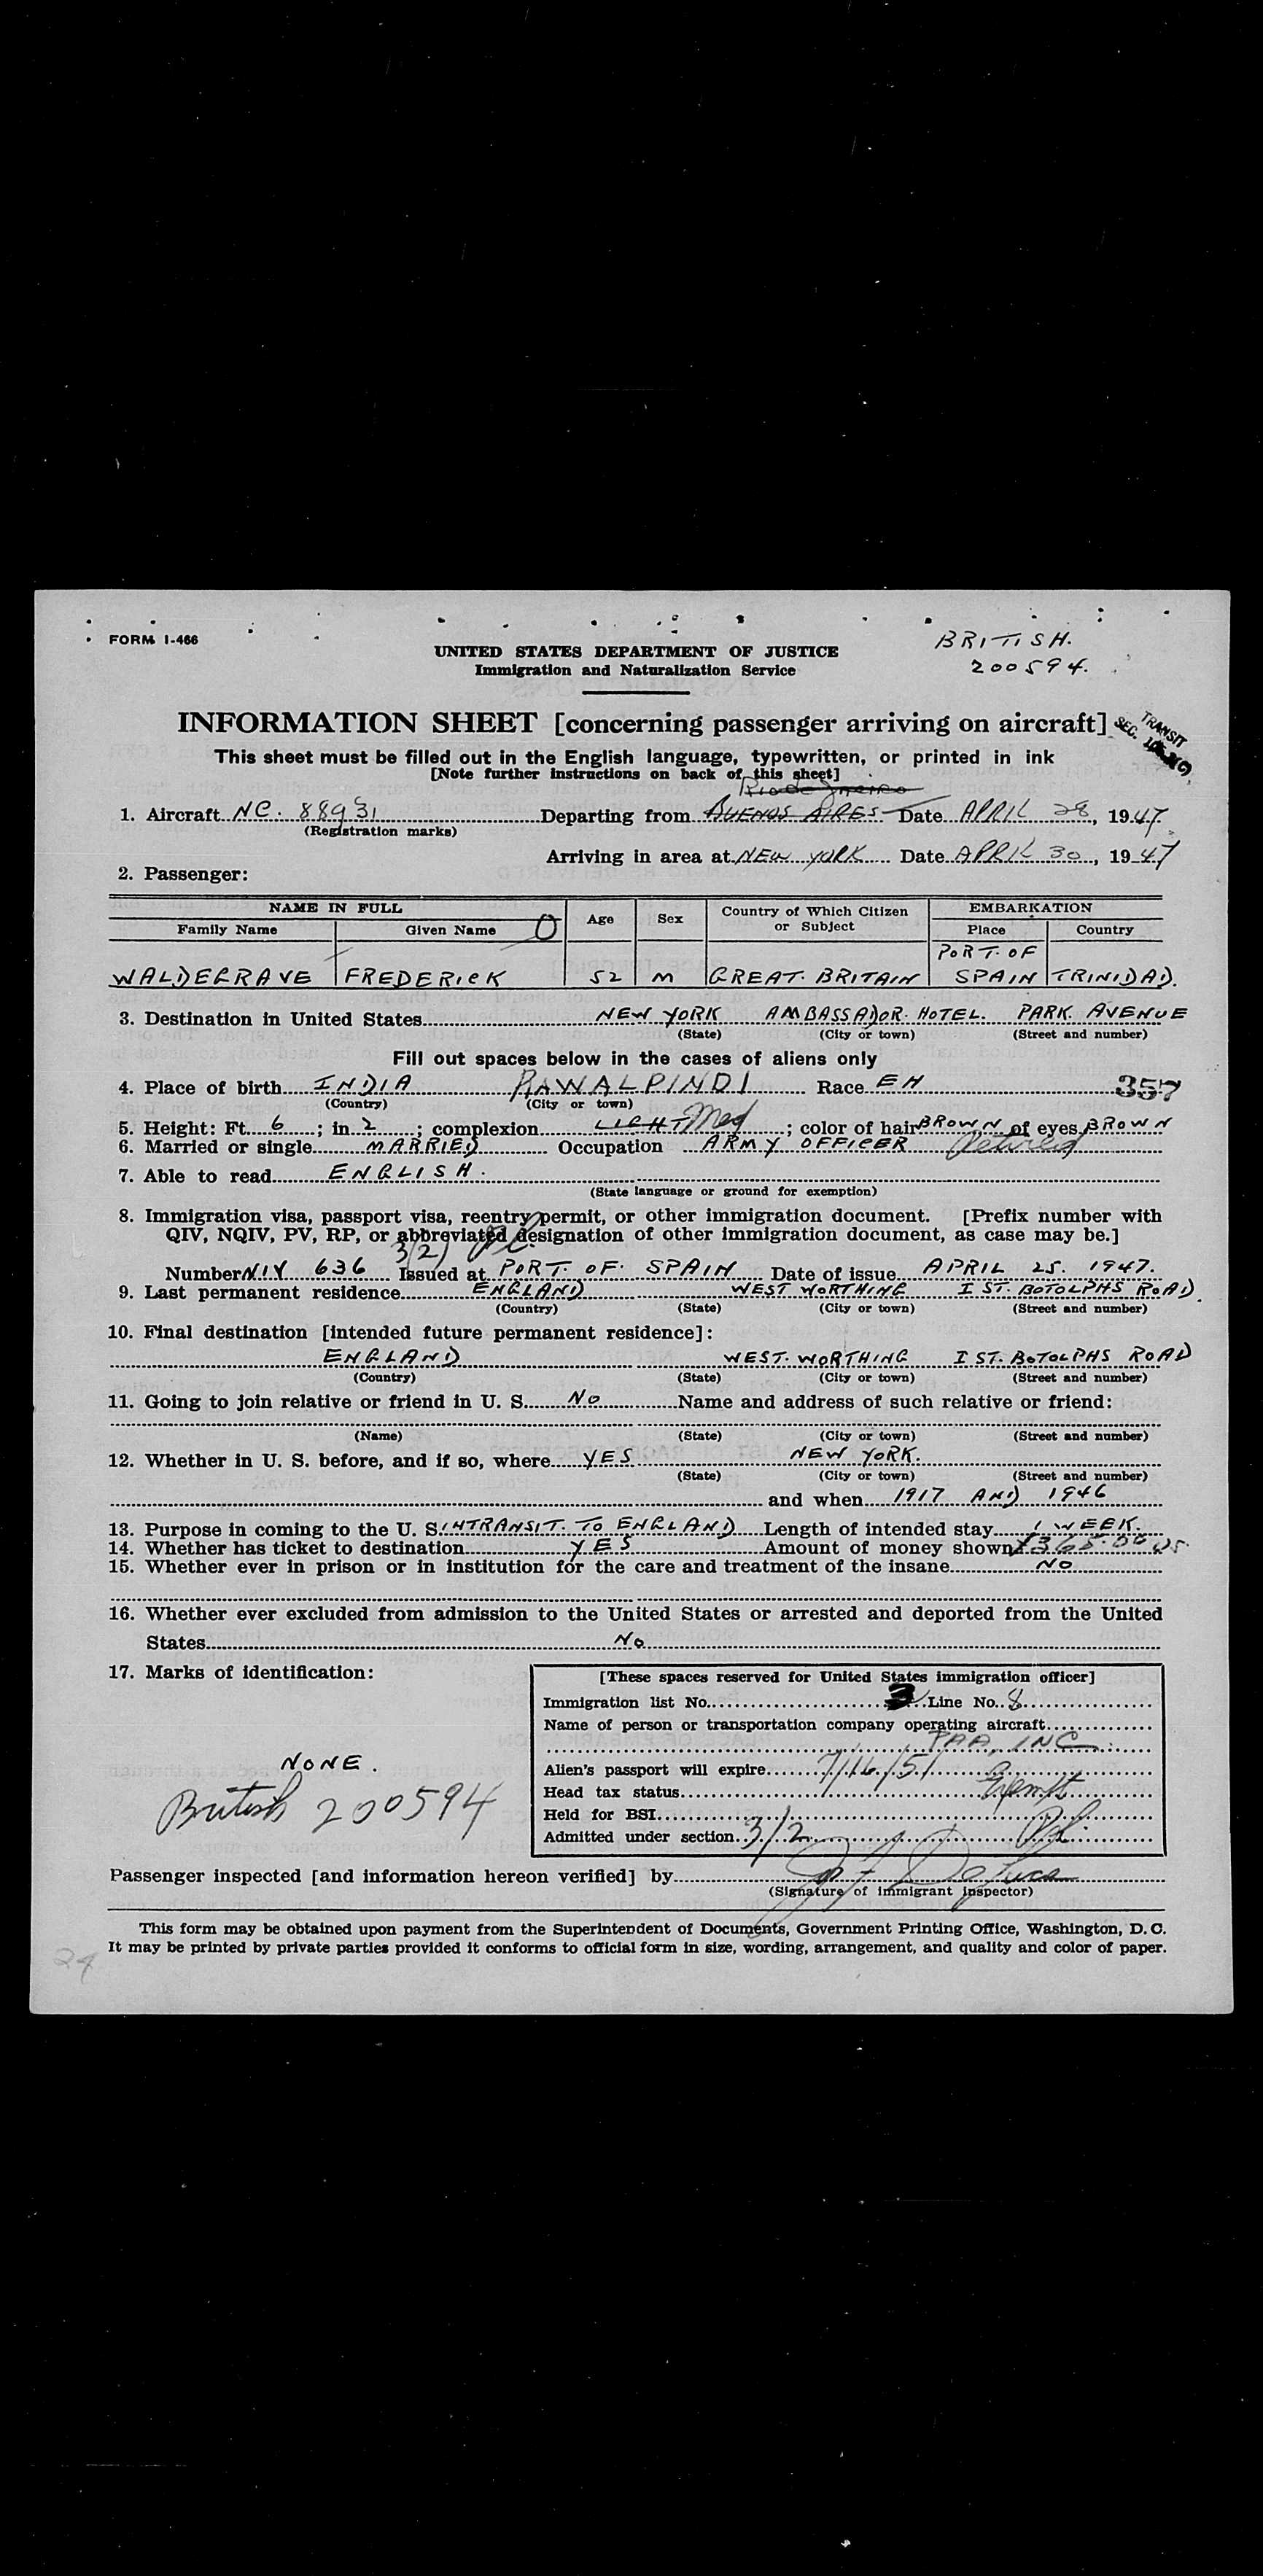 FORM I-466
BRITISH.
200594.
UNITED STATES DEPARTMENT OF JUSTICE
Immigration and Naturalization Service
INFORMATION SHEET [concerning passenger arriving on aircraft]
TRANSIT
SEC.
This sheet must be filled out in the English language, typewritten, or printed in ink
[Note further instructions on back of this sheet]
Rio de Janeiro
1. Aircraft NC. 88931 Departing from BUENOS AIRES Date APRIL 28, 1947.
(Registration marks)
Arriving in area at NEW YORK Date APRIL 30, 1947
2. Passenger:
NAME IN FULL Age Sex Country of Which Citizen or Subject EMBARKATION
Family Name Given Name Place Country
PORT. OF
WALDEGRAVE FREDERICK 52 M GREAT. BRITAIN SPAIN TRINIDAD.
3. Destination in United States NEW YORK AMBASSADOR. HOTEL. PARK. AVENUE
(State) (City or town) (Street and number)
Fill out spaces below in the cases of aliens only
4. Place of birth INDIA RAWALPINDI Race EH 357
(Country) (City or town)
5. Height: Ft. 6; in 2; complexion LIGHT Med; color of hair BROWN of eyes BROWN
6. Married or single MARRIED Occupation ARMY OFFICER Retired
7. Able to read ENGLISH.
(State language or ground for exemption)
8. Immigration visa, passport visa, reentry permit, or other immigration document. [Prefix number with
QIV, NQIV, PV, RP, or abbreviated designation of other immigration document, as case may be.]
3(2)
Number NIV 636 Issued at PORT. OF. SPAIN Date of issue APRIL 25. 1947.
9. Last permanent residence ENGLAND WEST WORTHING I ST. BOTOLPHS ROAD.
(Country) (State) (City or town) (Street and number)
10. Final destination [intended future permanent residence]:
ENGLAND WEST. WORTHING I ST. BOTOLPHS ROAD
(Country) (State) (City or town) (Street and number)
11. Going to join relative or friend in U. S. NO Name and address of such relative or friend:
(Name) (State) (City or town) (Street and number)
12. Whether in U. S. before, and if so, where YES NEW YORK.
(State) (City or town) (Street and number)
and when 1917 AND 1946
13. Purpose in coming to the U. S. INTRANSIT. TO ENGLAND Length of intended stay 1 WEEK.
14. Whether has ticket to destination YES Amount of money shown 365.00 US.
15. Whether ever in prison or in institution for the care and treatment of the insane NO
16. Whether ever excluded from admission to the United States or arrested and deported from the United
States NO
17. Marks of identification:
NONE.
British 200594
[These spaces reserved for United States immigration officer]
Immigration list No. 3 Line No. 8
Name of person or transportation company operating aircraft
PAA, INC.
Alien's passport will expire 7/16/51
Head tax status Exempt
Held for BSI
Admitted under section 3/2
Passenger inspected [and information hereon verified] by
(Signature of immigrant inspector)
This form may be obtained upon payment from the Superintendent of Documents, Government Printing Office, Washington, D. C.
It may be printed by private parties provided it conforms to official form in size, wording, arrangement, and quality and color of paper.
24